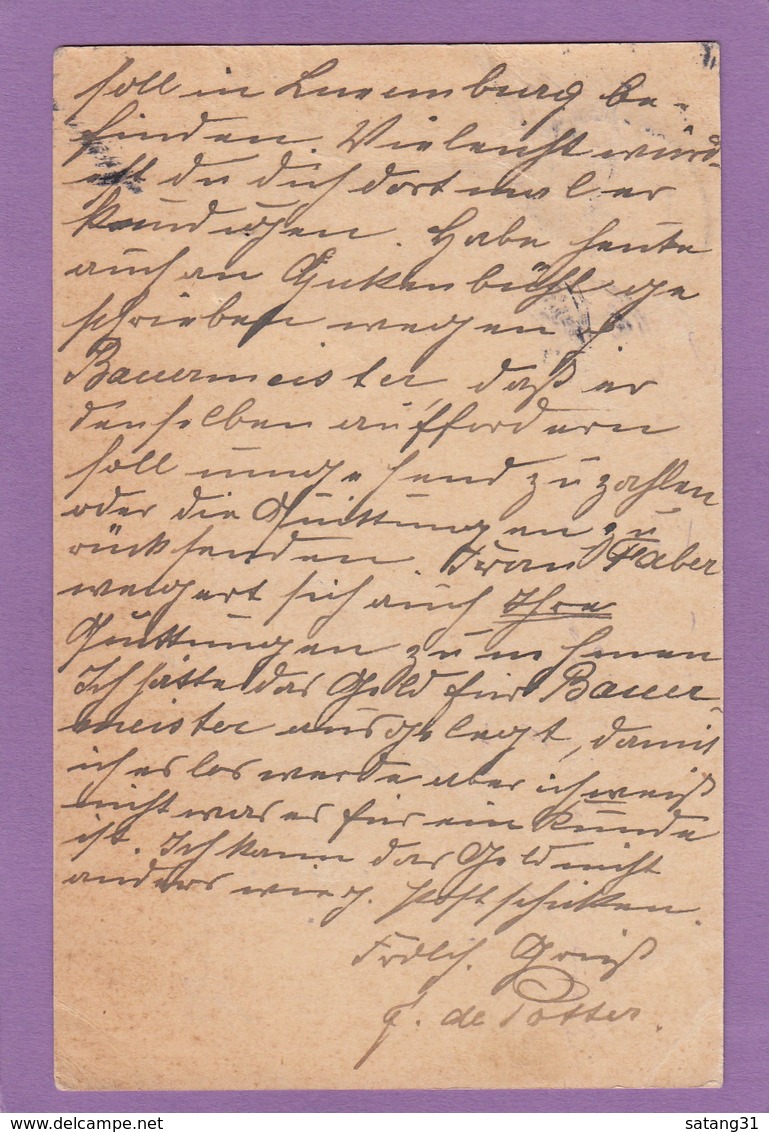 soll in Luxemburg be-
finden. Vieleicht würd-
est du dich dort mal er
kundigen. Habe heute
auch an Gutenbühl ge
schrieben wegen
Bauermeister, daß er
denselben auffordern
soll umgehend zu zahlen
oder die Quittungen zu
rücksenden. Frau Faber
weigert sich auch Ihre
Quittungen zu nehmen
Ich hätte das Geld für Bauer-
meister ausgelegt, damit
ich es los werde aber ich weiß
nicht was es für ein Kunde
ist. Ich kann das Geld nicht
anders wie p. Post schicken.
Frdlch. Gruß
F. de Potter.
satang31